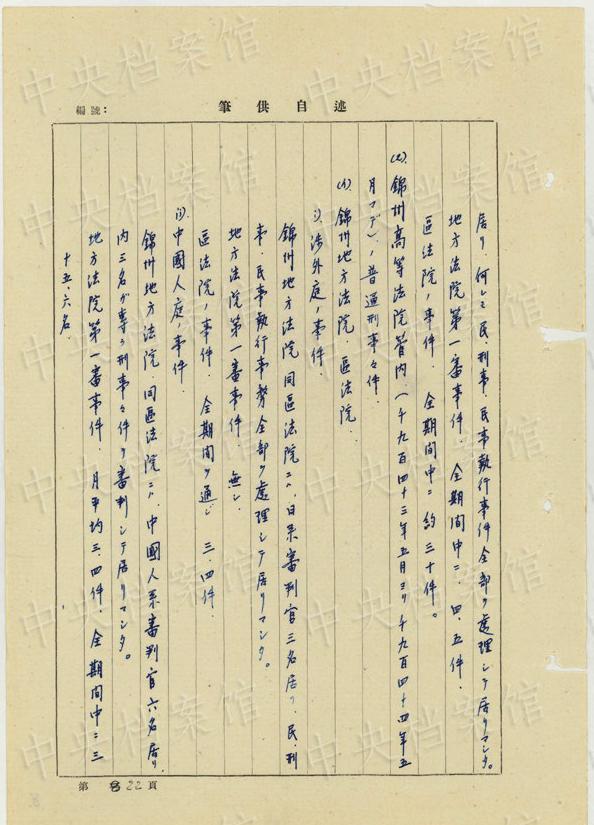 筆供自述
編號:
居リ、何レモ民刑事、民事執行事件全部ヲ處理シテ居リマシタ。
地方法院第一審事件、全期間中ニ、四、五件、
區法院ノ事件、全期間中ニ約三十件。
錦州高等法院管内（一千九百四十三年五月ヨリ一千九百四十四年五
月マデ）ノ普通刑事々件、
(イ)、錦州地方法院、區法院、
i)、涉外庭ノ事件、
錦州地方法院同區法院ニハ、日系審判官三名居リ、民、刑
事、民事執行事務全部ヲ處理シテ居リマシタ。
地方法院第一審事件 無シ、
區法院ノ事件、全期間ヲ通シ 三、四件、
ii)、中國人庭ノ事件、
錦州地方法院、同區法院ニハ、中國人系審判官六名居リ、
内三名ガ專ラ刑事々件ヲ審判シテ居リマシタ。
地方法院第一審事件、月平均三、四件、全期間中ニ三
十五、六名、
第 22 頁
中央档案馆